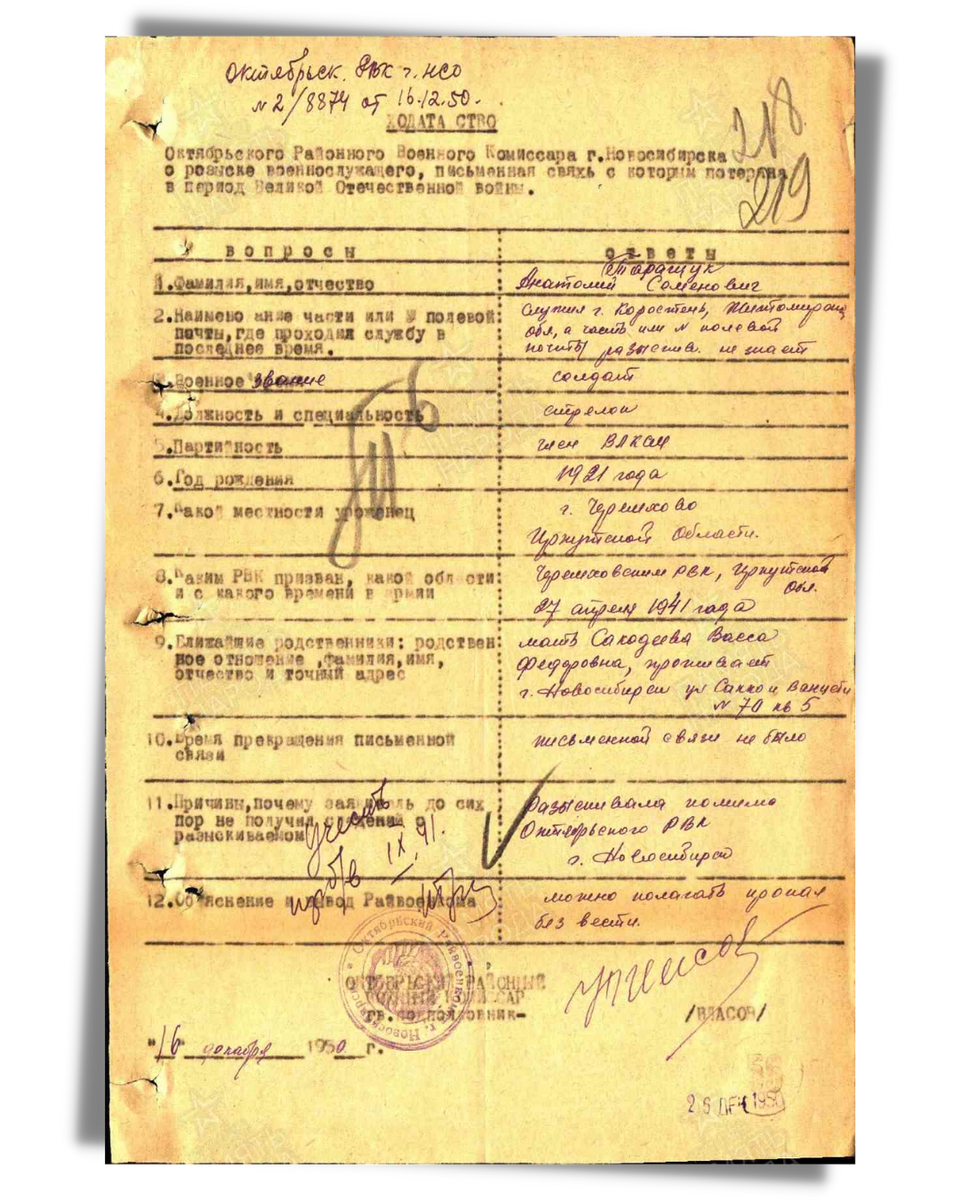 Октябрьск. РВК г. НСО
№ 2/8874 от 16.12.50.
ХОДАТА СТВО
218
Октябрьского Районного Военного Комиссара г.Новосибирска
о розыске военнослужащего, письменная связь с которым потеряна
в период Великой Отечественной войны.
219
ВОПРОСЫ
ОТВЕТЫ
1.Фамилия,имя,отчество
Таращук
Анатолий Семенович
2.Наимено ание части или № полевой
почты,где проходил службу в
последнее время.
служил г. Коростень, Житомирск
обл, а часть или № полевой
почты разыскив. не знает
3.Военное звание
солдат
4.Должность и специальность
стрелок
5.Партийность
член ВЛКСМ
6.Год рождения
1921 года
7.Какой местности уроженец
г. Черемхово
Иркутской Области.
8.Каким РВК призван, какой области
и с какого времени в армии
Черемховским РВК, Иркутской
Обл.
27 апреля 1941 года
9.Ближайшие родственники: родствен
ное отношение ,фамилия,имя,
отчество и точный адрес
мать Васса
Федоровна, проживает
г. Новосибирск ул Сакко и Ванцети
№ 70 кв 5
10.Время прекращения письменной
связи
письменной связи не было
11.Причины,почему заявитель до сих
пор не получил сведений о
разыскиваемом
Разыскивала помимо
Октябрьского РВК
г. Новосибирск
учесть
пр б/в IX.41.
12.Объяснение и вывод Райвоенкома
можно полагать пропал
без вести.
ОКТЯБРЬСКИЙ РАЙОННЫЙ
ВОЕННЫЙ КОМИССАР
гв.подполковник-
/ВЛАСОВ/
"16" декабря 1950 г.
26 ДЕК 1950